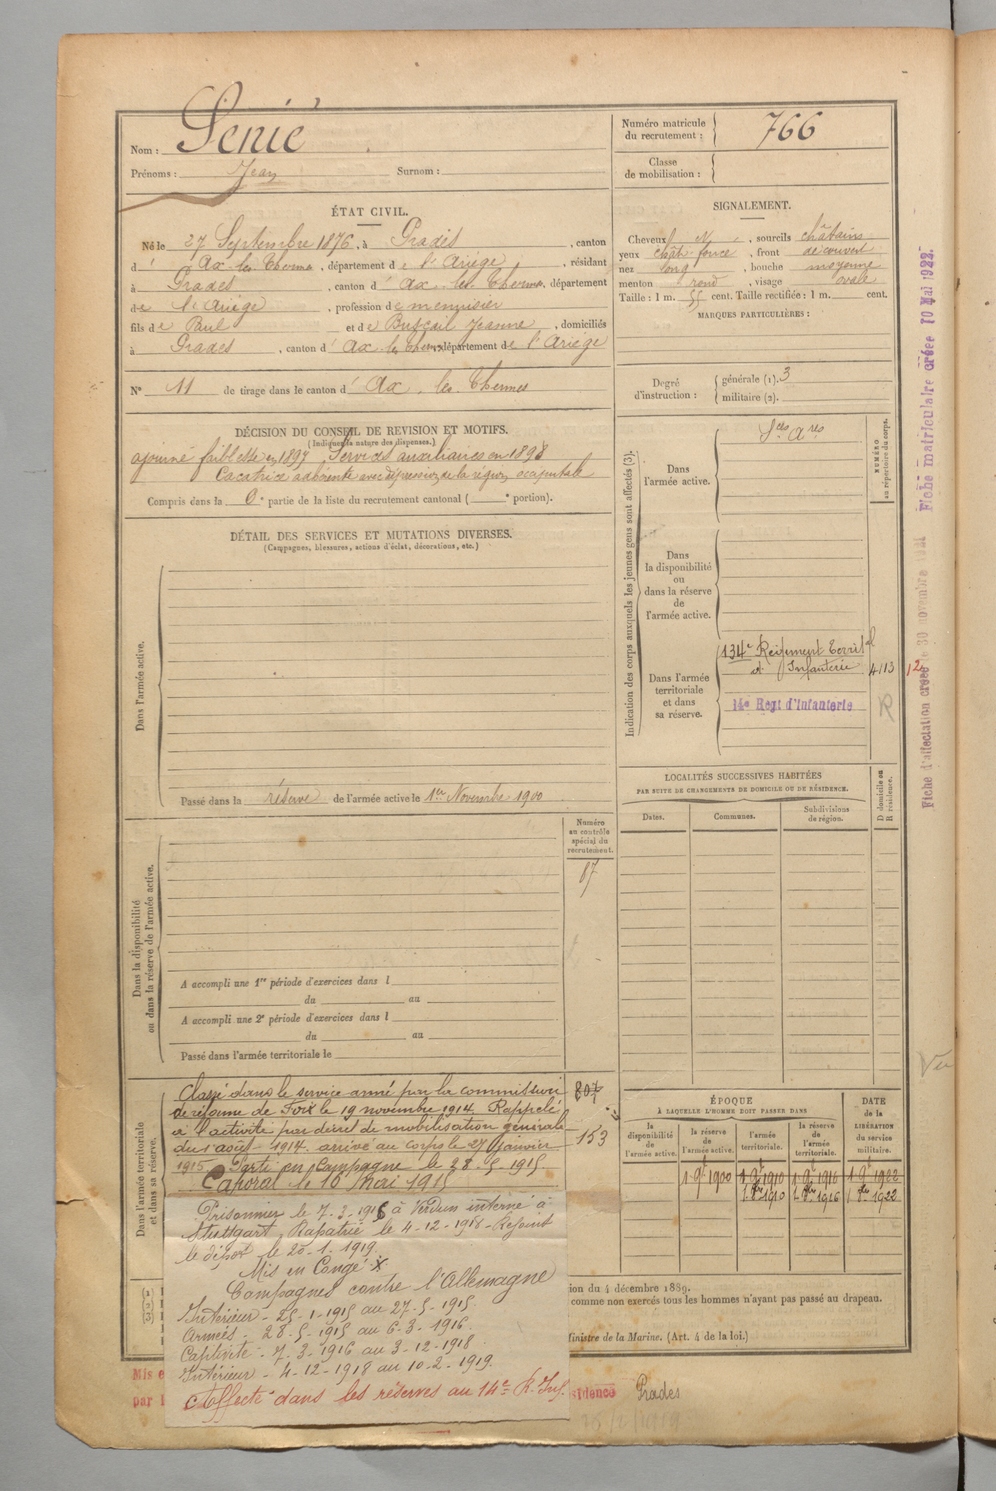 Nom : Senié
Prénoms : Jean Surnom :
Numéro matricule du recrutement : 766
Classe de mobilisation :
ÉTAT CIVIL.
Né le 27 Septembre 1876, à Prades, canton
d' Ax-les-Thermes, département de l'Ariège, résidant
à Prades, canton d' Ax-les-Thermes, département
de l'Ariège, profession de menuisier
fils de Paul et de Buscail Jeanne, domiciliés
à Prades, canton d' Ax les Thermes, département de l'Ariège
N° 11 de tirage dans le canton d' Ax-les-Thermes
SIGNALEMENT.
Cheveux N, sourcils châtains
yeux chât. foncé, front découvert
nez long, bouche moyenne
menton rond, visage ovale
Taille : 1 m. 55 cent. Taille rectifiée : 1 m. cent.
MARQUES PARTICULIÈRES :
Degré d'instruction : générale (1). 3
militaire (2).
DÉCISION DU CONSEIL DE REVISION ET MOTIFS.
(Indiquer la nature des dispenses.)
ajourné faiblesse en 1897 Services auxiliaires en 1898
Cicatrice adhérente avec dépression de la région occipitale
Compris dans la 6e partie de la liste du recrutement cantonal ( e portion).
DÉTAIL DES SERVICES ET MUTATIONS DIVERSES.
(Campagnes, blessures, actions d'éclat, décorations, etc.)
Dans l'armée active.
Passé dans la réserve de l'armée active le 1er Novembre 1900
Indication des corps auxquels les jeunes gens sont affectés (3).
NUMÉRO au répertoire du corps.
Dans l'armée active.
Sces Ares
Dans la disponibilité ou dans la réserve de l'armée active.
Dans l'armée territoriale et dans sa réserve.
134e Régiment Territal
d'Infanterie
4113
12
14e Regt d'Infanterie
R
Fiche d'affectation créée le 30 novembre
Fiche matriculaire créée 10 Mai 1922.
LOCALITÉS SUCCESSIVES HABITÉES
PAR SUITE DE CHANGEMENTS DE DOMICILE OU DE RÉSIDENCE.
Dates. Communes. Subdivisions de région. D domicile ou R résidence.
Numéro au contrôle spécial du recrutement.
87
Dans la disponibilité ou dans la réserve de l'armée active.
A accompli une 1re période d'exercices dans l
du au
A accompli une 2e période d'exercices dans l
du au
Passé dans l'armée territoriale le
Vu
Dans l'armée territoriale et dans sa réserve.
Classé dans le service armé par la commission
de réforme de Foix le 19 novembre 1914. Rappelé
à l'activité par décret de mobilisation générale
du 1 août 1914. arrivé au corps le 27 janvier
1915 Parti en Campagne le 28-5-1915.
Caporal le 16 mai 1915
807
153
Prisonnier le 7-3-1916 à Verdun interné à
Stuttgart, Rapatrié le 4-12-1918 - Rejoint
le dépôt le 20-1-1919.
Mis en Congé X
Campagnes contre l'Allemagne
Intérieur - 25-1-1915 au 27-5-1915.
Armées - 28-5-1915 au 6-3-1916.
Captivité - 7-3-1916 au 3-12-1918
Intérieur - 4-12-1918 au 10-2-1919.
Affecté dans les réserves au 14e R. Inf.
ÉPOQUE
À LAQUELLE L'HOMME DOIT PASSER DANS
la disponibilité de l'armée active. la réserve de l'armée active. l'armée territoriale. la réserve de l'armée territoriale.
DATE de la LIBÉRATION du service militaire.
1 9t 1900 1 9t 1910 1 9t 1916 1 9t 1922
1. 8re 1910 1. 8re 1916 1. 8re 1922
ion du 4 décembre 1889.
comme non exercés tous les hommes n'ayant pas passé au drapeau.
Ministre de la Marine. (Art. 4 de la loi.)
Mis e
par l
sidence Prades